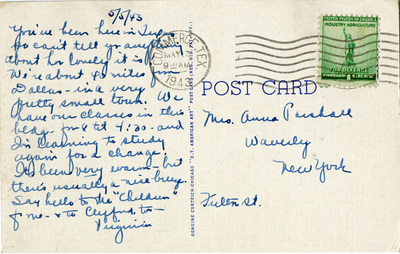 5/5/43
You've been here in July
so can't tell you any
about how lovely it is
We're about 60 miles from
Dallas - in a very
pretty small town. We
have our classes in this
bldg. from 8 til 4:30 - and
I'm learning to study
again for a change.
It's been very warm - but
there's usually a nice breeze
Say hello to the "Children"
for me - & to Clifford, too
Virginia
COMMERCE, TEX.
MAY
9-AM
1943
UNITED STATES OF AMERICA
INDUSTRY AGRICULTURE
FOR DEFENSE
POST CARD
Mrs. Anna Parshall
Waverly
New York
Fulton St.
GENUINE CURTEICH-CHICAGO "C.T. AMERICAN ART" POST CARD